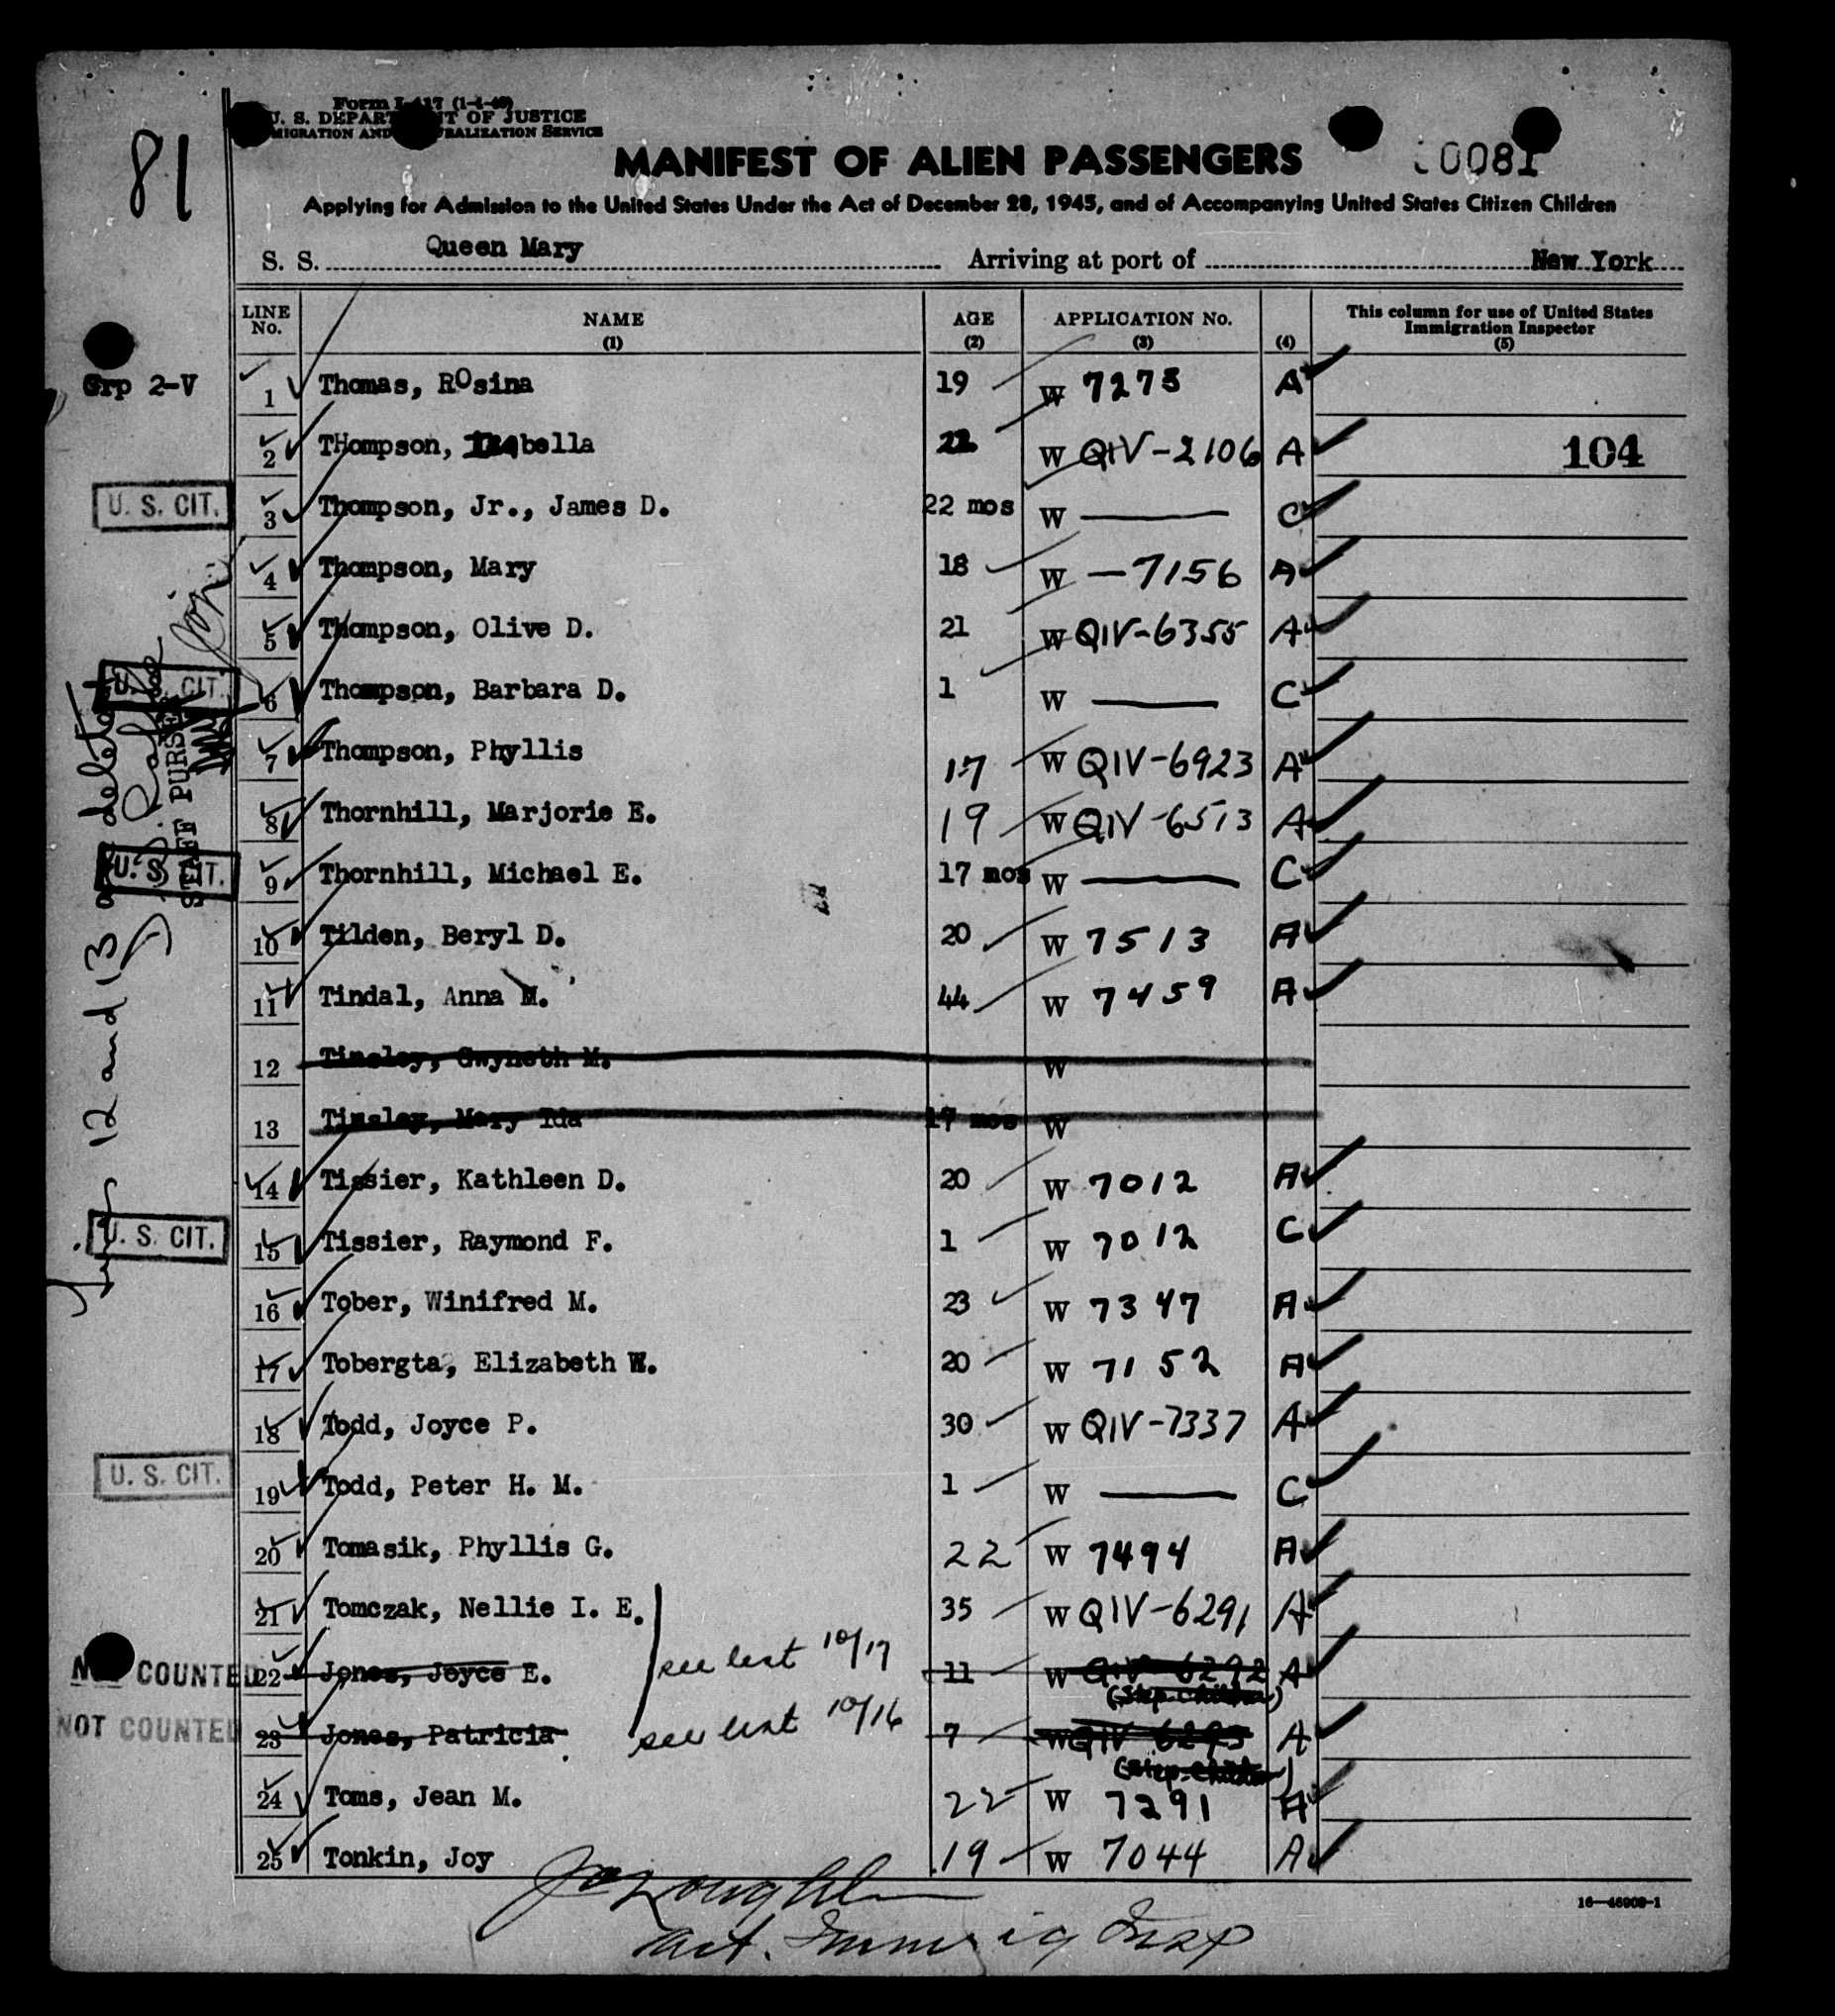 81
Form I-417 (1-1-46)
U. S. DEPARTMENT OF JUSTICE
IMMIGRATION AND NATURALIZATION SERVICE
MANIFEST OF ALIEN PASSENGERS
0081
Applying for Admission to the United States Under the Act of December 28, 1945, and of Accompanying United States Citizen Children
S. S. Queen Mary Arriving at port of New York
LINE No. NAME (1) AGE (2) APPLICATION No. (3) (4) This column for use of United States Immigration Inspector (5)
Grp 2-V
1 Thomas, ROsina 19 W 7273 A
2 THompson, Izabella 22 W QIV-2106 A 104
U. S. CIT. 3 Thompson, Jr., James D. 22 mos W — C
4 Thompson, Mary 18 W -7156 A
5 Thompson, Olive D. 21 W QIV-6355 A
U. S. CIT. 6 Thompson, Barbara D. 1 W — C
7 Thompson, Phyllis 17 W QIV-6923 A
8 Thornhill, Marjorie E. 19 W QIV-6513 A
U. S. CIT. 9 Thornhill, Michael E. 17 mos W — C
10 Tilden, Beryl D. 20 W 7513 A
11 Tindal, Anna M. 44 W 7459 A
12 Tinsley, Gwyneth M. W
13 Tinsley, Mary Ida 17 mos W
14 Tissier, Kathleen D. 20 W 7012 A
U. S. CIT. 15 Tissier, Raymond F. 1 W 7012 C
16 Tober, Winifred M. 23 W 7347 A
17 Tobergta, Elizabeth W. 20 W 7152 A
18 Todd, Joyce P. 30 W QIV-7337 A
U. S. CIT. 19 Todd, Peter H. M. 1 W — C
20 Tomasik, Phyllis G. 22 W 7494 A
21 Tomczak, Nellie I. E. 35 W QIV-6291 A
NOT COUNTED 22 Jones, Joyce E. see list 10/17 11 W QIV-6292 A
(Step-children)
NOT COUNTED 23 Jones, Patricia see list 10/16 7 W QIV 6293 A
(Step-children)
24 Toms, Jean M. 22 W 7291 A
25 Tonkin, Joy 19 W 7044 A
Lines 12 and 13 are deleted
STAFF PURSER
Act. Immig Insp
16-46908-1